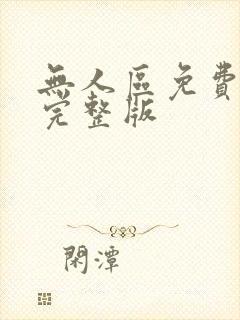 無人區免費
完整版
閑潭